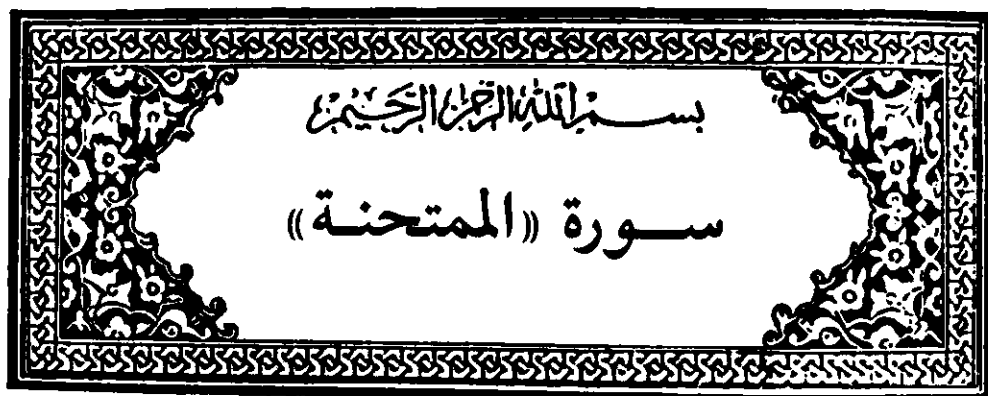 بسم الله الرحمن الرحيم
ســورة «الممتحنـة»